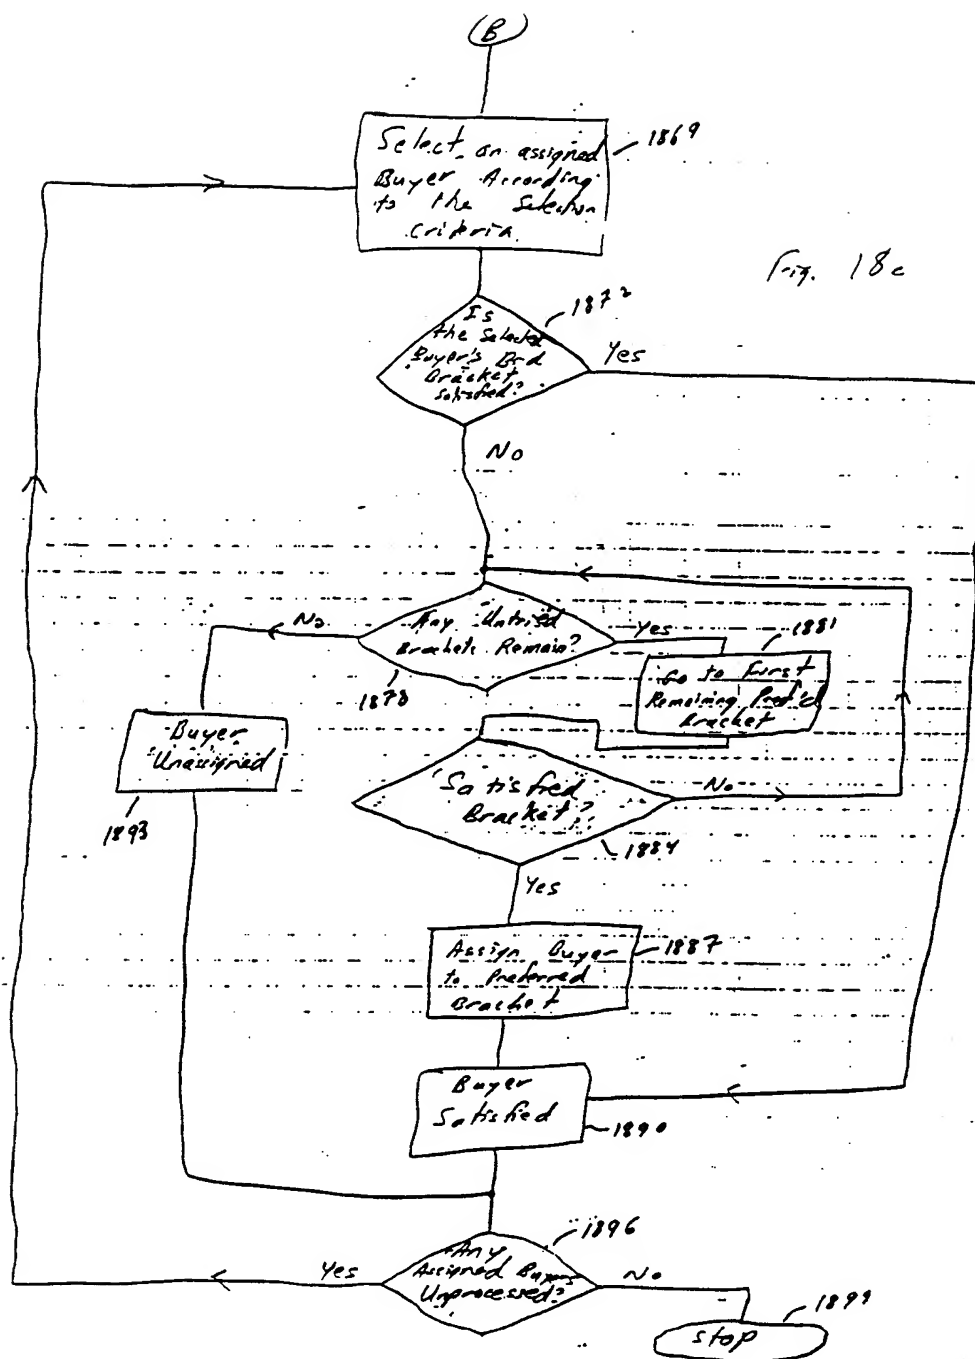 B
Select an assigned
Buyer According
to the Selection
Criteria
1869
Fig. 18c
Is
the Selected
Buyer's Bid
Bracket
Satisfied?
1872
Yes
No
Any Untried
Brackets Remain?
1878
No
Yes
1881
Go to First
Remaining Pref'd
Bracket
Buyer
Unassigned
1893
Satisfied
Bracket?
1884
No
Yes
Assign Buyer
to Preferred
Bracket
1887
Buyer
Satisfied
1890
Any
Assigned Buyers
Unprocessed?
1896
Yes
No
Stop
1899